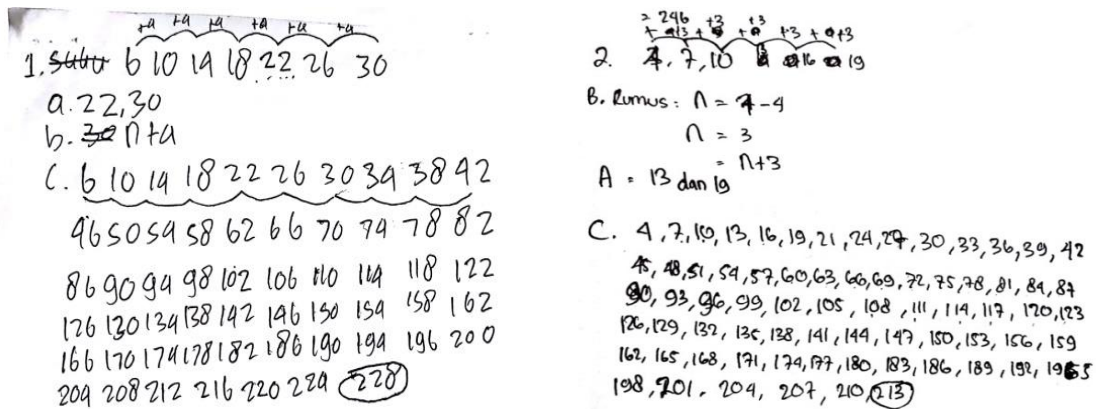 +4 +4 +4 +4 +4 +4
1. 6 10 14 18 22 26 30
a. 22, 30
b. n+4
C. 6 10 14 18 22 26 30 34 38 42
46 50 54 58 62 66 70 74 78 82
86 90 94 98 102 106 110 114 118 122
126 130 134 138 142 146 150 154 158 162
166 170 174 178 182 186 190 194 196 200
204 208 212 216 220 224 228
+3 +3
+3 +3
2. 4, 7, 10 16 19
B. Rumus : n = 7-4
n = 3
= n+3
A = 13 dan 19
C. 4, 7, 10, 13, 16, 19, 21, 24, 27, 30, 33, 36, 39, 42
45, 48, 51, 54, 57, 60, 63, 66, 69, 72, 75, 78, 81, 84, 87
90, 93, 96, 99, 102, 105, 108, 111, 114, 117, 120, 123
126, 129, 132, 135, 138, 141, 144, 147, 150, 153, 156, 159
162, 165, 168, 171, 174, 177, 180, 183, 186, 189, 192, 195
198, 201, 204, 207, 210, 213